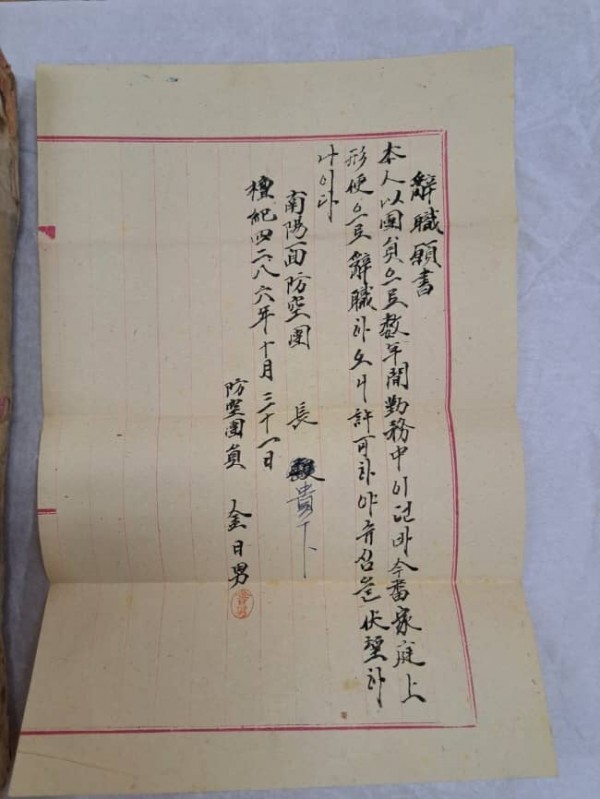 辭職願書
本人以團員으로數年間勤務中이던바今番家庭上
形便으로辭職하오니許可하야주심을伏望하
나이다
南陽面防空團長 貴下
檀紀四二八六年十月三十一日
防空團員 金日男